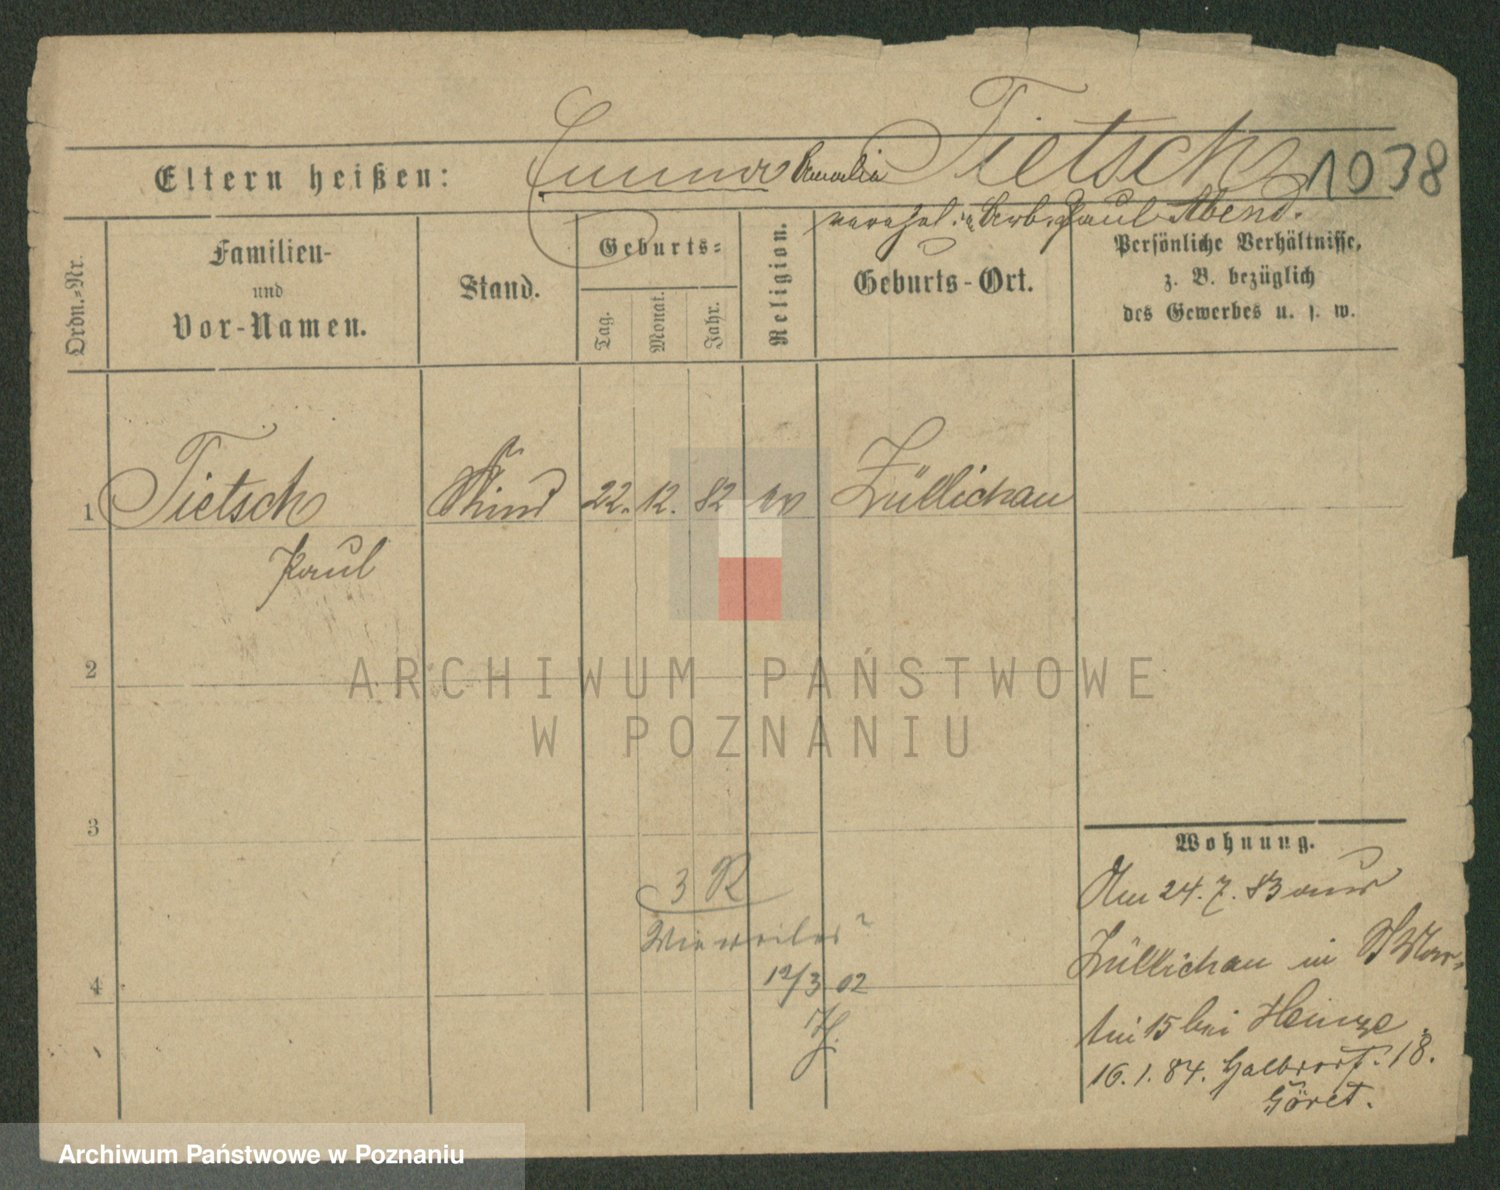 Emma Amalia Tietsch 1038
Eltern heißen:
verehel. Arb. Paul Abend.
Ordn.-Nr.
Familien-
und
Vor-Namen.
Stand.
Geburts-
Tag.
Monat.
Jahr.
Religion.
Geburts-Ort.
Persönliche Verhältnisse,
z. B. bezüglich
des Gewerbes u. s. w.
1 Tietsch Kind 22. 12. 82 ev Züllichau
Paul
2
ARCHIWUM PAŃSTWOWE
W POZNANIU
3
Wohnung.
3 R
Am 24. 7. 83 aus
Züllichau in St Mar-
12/3 02
4
tin 15 bei Heinze.
16. 1. 84. Halbdorf. 18.
Göret.
Archiwum Państwowe w Poznaniu